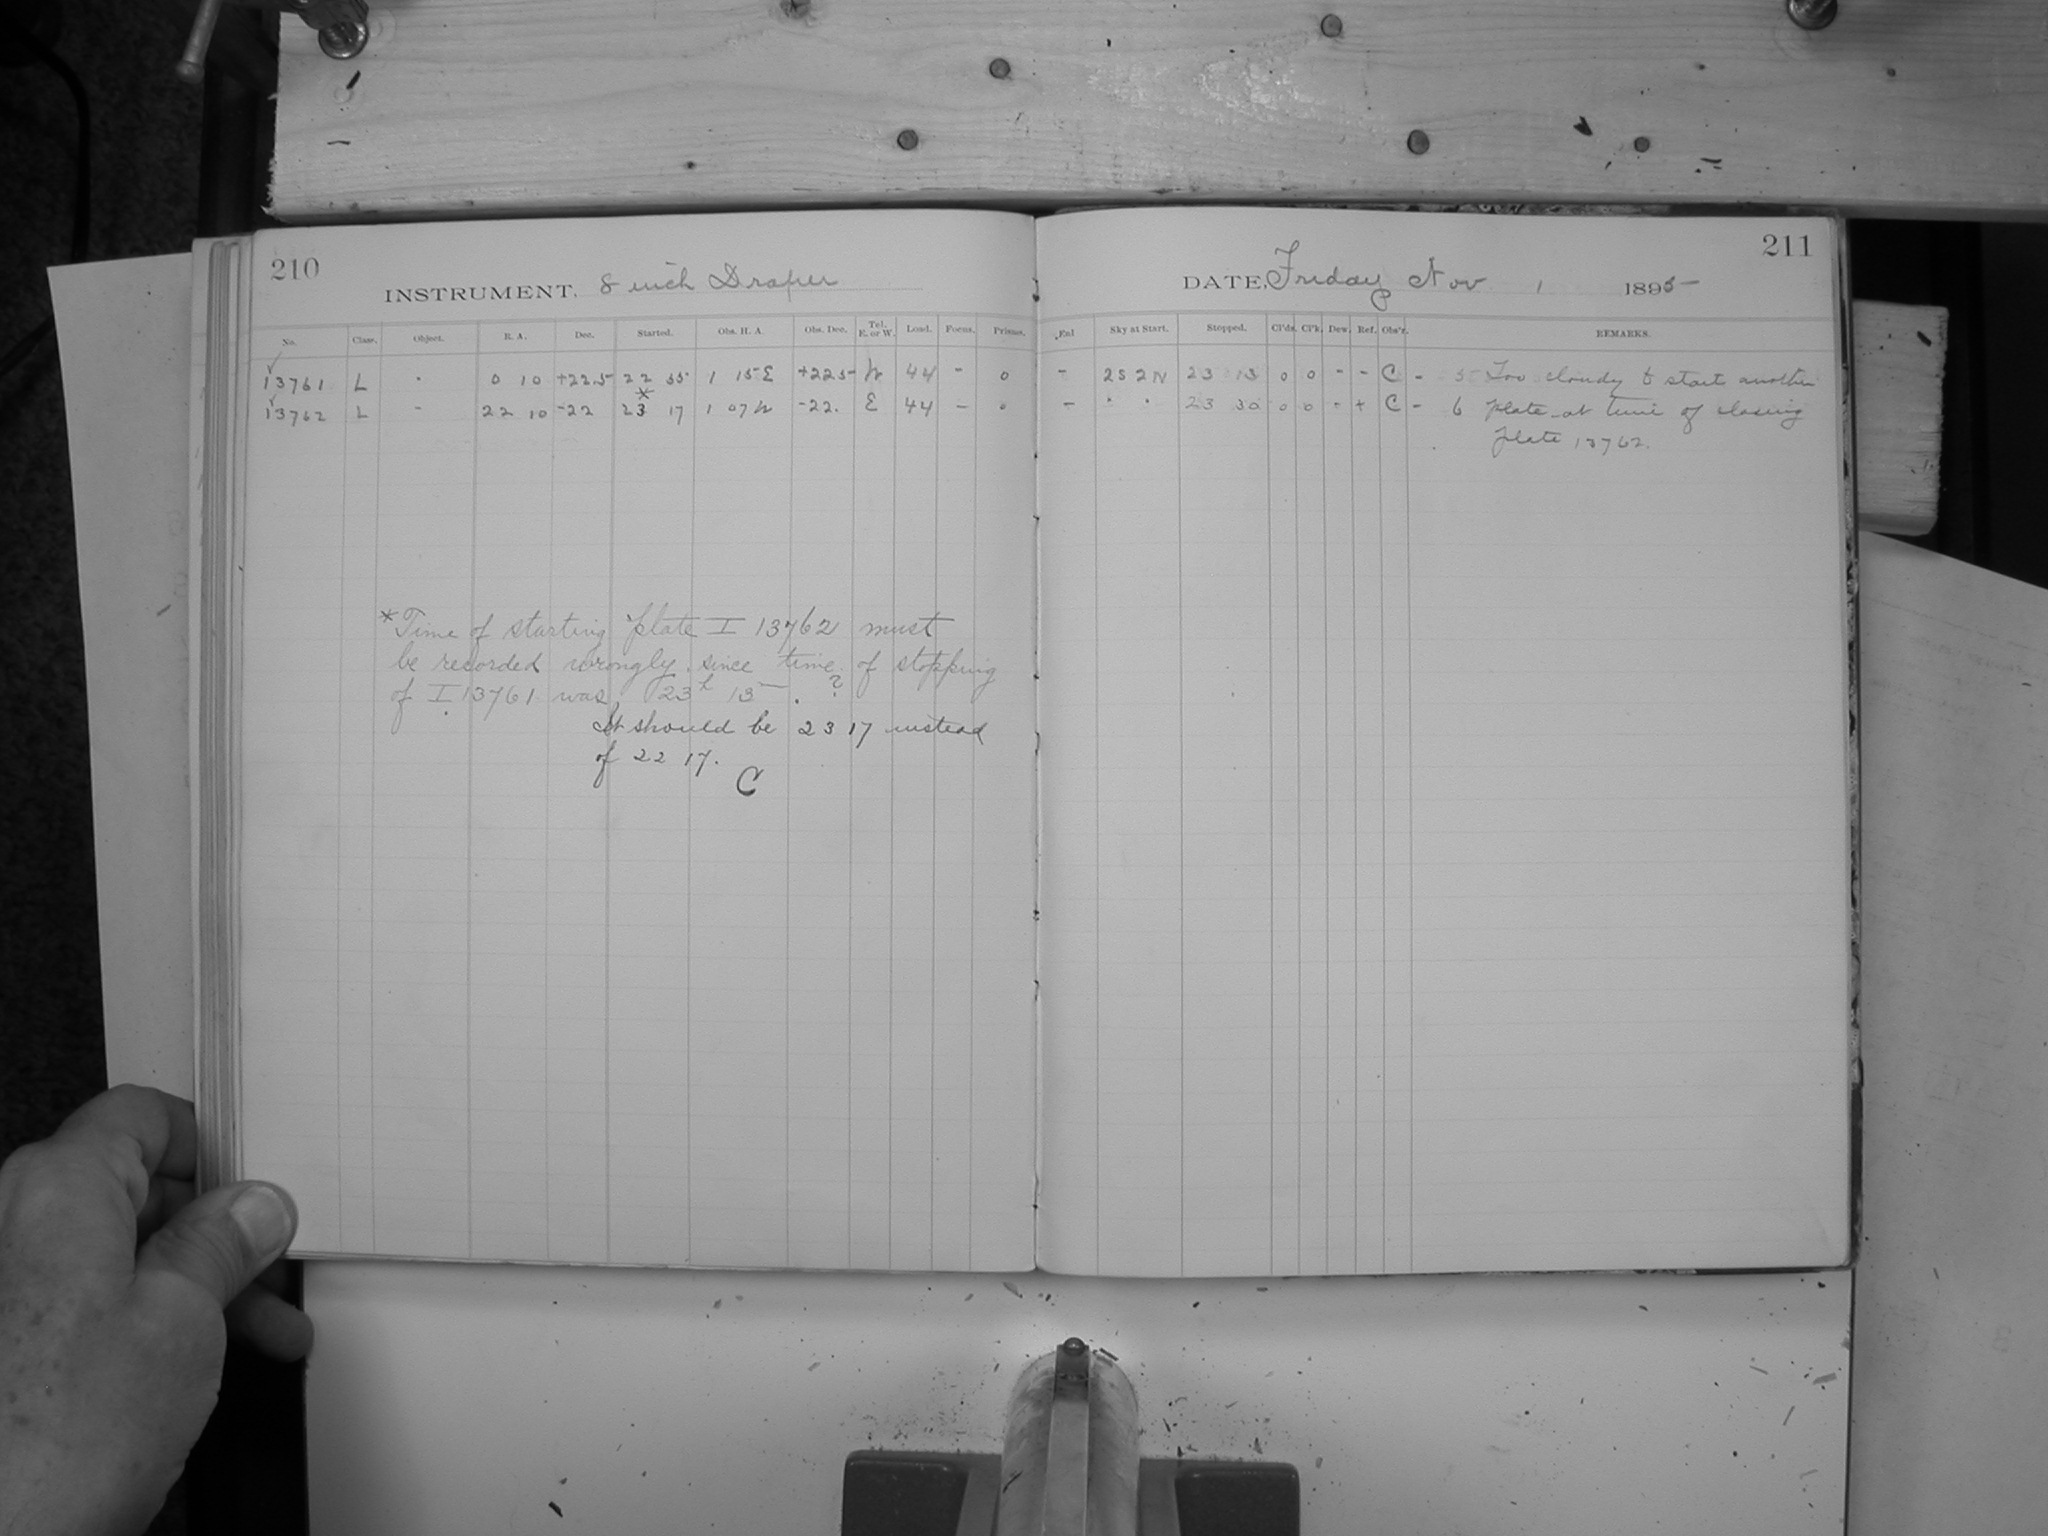 210
INSTRUMENT, 8 inch Draper
No. Class. Object. R. A. Dec. Started. Obs. H. A. Obs. Dec. Tel. E. or W. Load. Focus. Prisms.
13761 L - 0 10 +22.5 22 55 1 15 E +22.5 W 44 - 0
13762 L - 22 10 -22 23 17 1 07 W -22. E 44 - 0
*Time of starting plate I 13762 must
be recorded wrongly, since time of stopping
of I 13761 was 23h 13m. ?
It should be 23 17 instead
of 22 17.
C
211
DATE, Friday Nov 1 1895
Enl Sky at Start. Stopped. Cl'ds. Cl'k. Dew. Ref. Obs'r. REMARKS.
- 2S 2N 23 13 0 0 - - C - 5 Too cloudy to start another
- " " 23 30 0 0 - + C - 6 plate at time of closing
plate 13762.